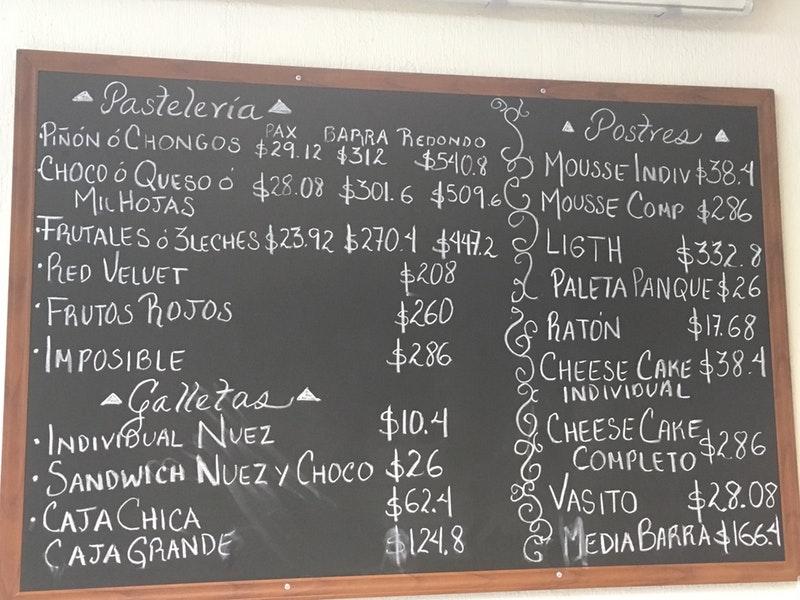 Pastelería
PAX BARRA REDONDO
·PIÑÓN Ó CHONGOS $29.12 $312 $540.8
·CHOCO Ó QUESO Ó $28.08 $301.6 $509.6
MILHOJAS
·FRUTALES Ó 3LECHES $23.92 $270.4 $447.2
·RED VELVET $208
·FRUTOS ROJOS $260
·IMPOSIBLE $286
Galletas
·INDIVIDUAL NUEZ $10.4
·SANDWICH NUEZ Y CHOCO $26
·CAJA CHICA $62.4
CAJA GRANDE $124.8
Postres
MOUSSE INDIV $38.4
MOUSSE COMP $286
LIGTH $332.8
PALETA PANQUE $26
RATÓN $17.68
CHEESE CAKE $38.4
INDIVIDUAL
CHEESE CAKE $286
COMPLETO
VASITO $28.08
MEDIA BARRA $166.4